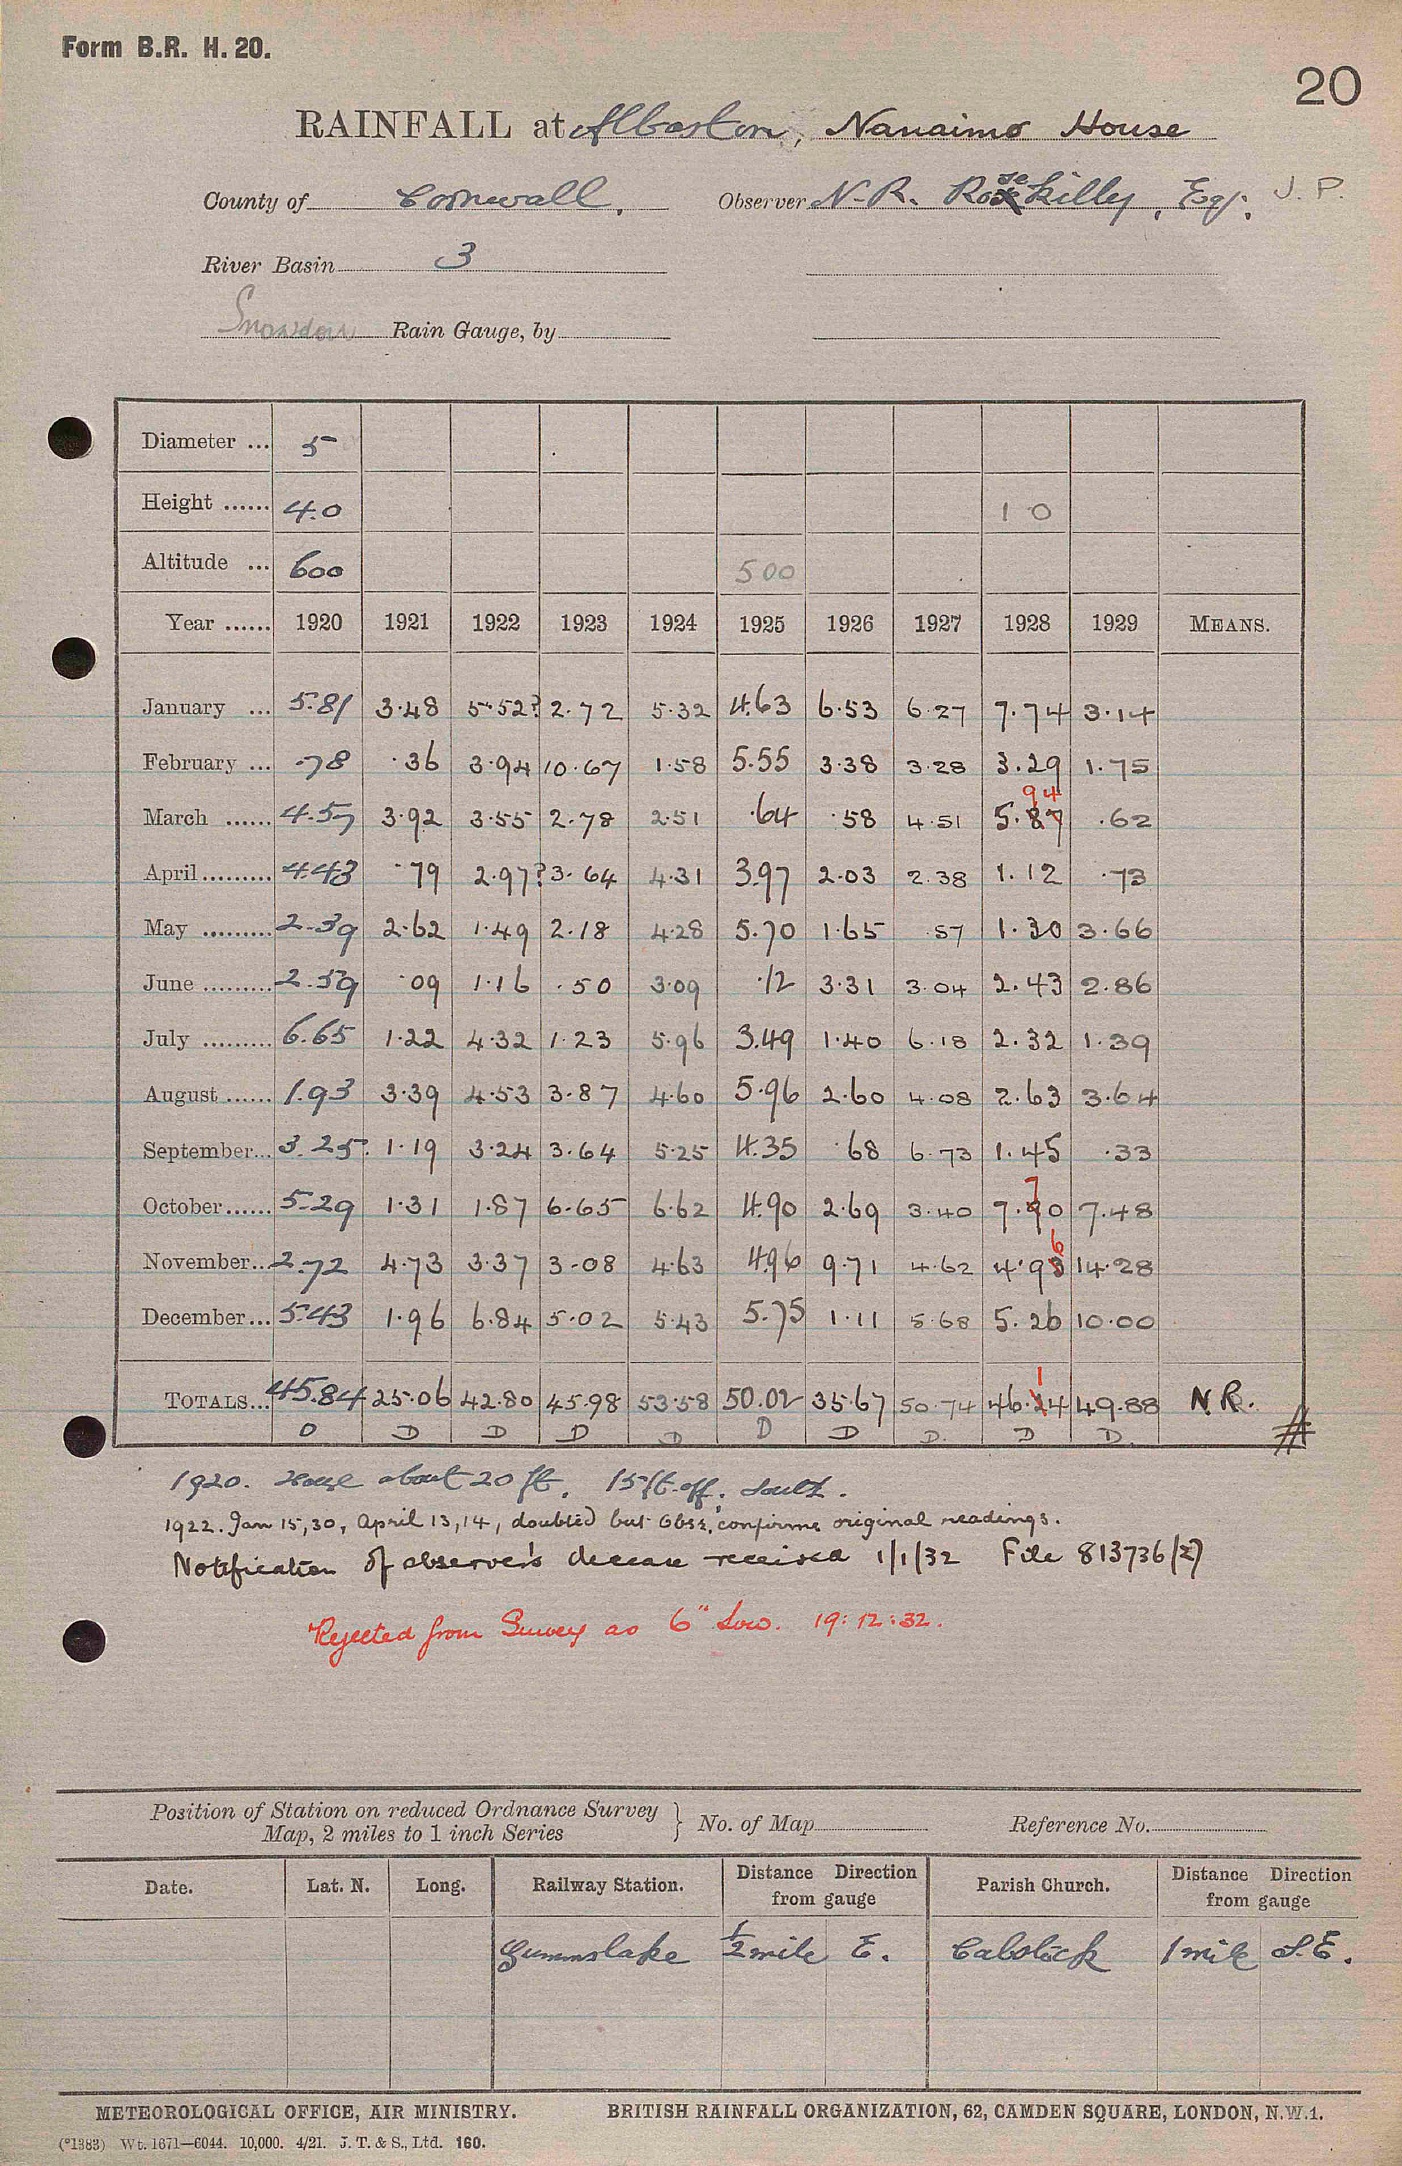 Form B.R. H. 20.
20
RAINFALL at Albaston, Nanaimo House
County of Cornwall. Observer N. R. Rosekilly, Esq., J. P.
River Basin 3
Snowdon Rain Gauge, by
Diameter ... 5
Height ...... 4.0 1 0
Altitude ... 600 500
Year ...... 1920 1921 1922 1923 1924 1925 1926 1927 1928 1929 MEANS.
January ... 5.81 3.48 5.52? 2.72 5.32 4.63 6.53 6.27 7.74 3.14
February ... .78 .36 3.94 10.67 1.58 5.55 3.38 3.28 3.29 1.75
94
March ...... 4.57 3.92 3.55 2.78 2.51 .64 .58 4.51 5.87 .62
April ......... 4.43 .79 2.97? 3.64 4.31 3.97 2.03 2.38 1.12 .73
May ......... 2.39 2.62 1.49 2.18 4.28 5.70 1.65 .57 1.30 3.66
June ......... 2.59 .09 1.16 .50 3.09 .12 3.31 3.04 2.43 2.86
July ......... 6.65 1.22 4.32 1.23 5.96 3.49 1.40 6.18 2.32 1.39
August ...... 1.93 3.39 4.53 3.87 4.60 5.96 2.60 4.08 2.63 3.64
September... 3.25 1.19 3.24 3.64 5.25 4.35 .68 6.73 1.45 .33
7
October...... 5.29 1.31 1.87 6.65 6.62 4.90 2.69 3.40 7.90 7.48
6
November... 2.72 4.73 3.37 3.08 4.63 4.96 9.71 4.62 4.98 14.28
December... 5.43 1.96 6.84 5.02 5.43 5.75 1.11 5.68 5.26 10.00
1
TOTALS... 45.84 25.06 42.80 45.98 53.58 50.02 35.67 50.74 46.24 49.88 N.R.
D D D D D D D D. D D. #
1920. House about 20 ft. 15 ft. off. South.
1922. Jan 15, 30, April 13, 14, doubted but Obsr. confirms original readings.
Notification of observer's decease received 1/1/32 File 813736/27
Rejected from Survey as 6" low. 19:12:32.
Position of Station on reduced Ordnance Survey
Map, 2 miles to 1 inch Series } No. of Map Reference No.
Date. Lat. N. Long. Railway Station. Distance Direction from gauge Parish Church. Distance Direction from gauge
Gunnislake 1/2 mile E. Calstock 1 mile S.E.
METEOROLOGICAL OFFICE, AIR MINISTRY. BRITISH RAINFALL ORGANIZATION, 62, CAMDEN SQUARE, LONDON, N.W.1.
(*1383) Wt. 1671—6044. 10,000. 4/21. J. T. & S., Ltd. 160.